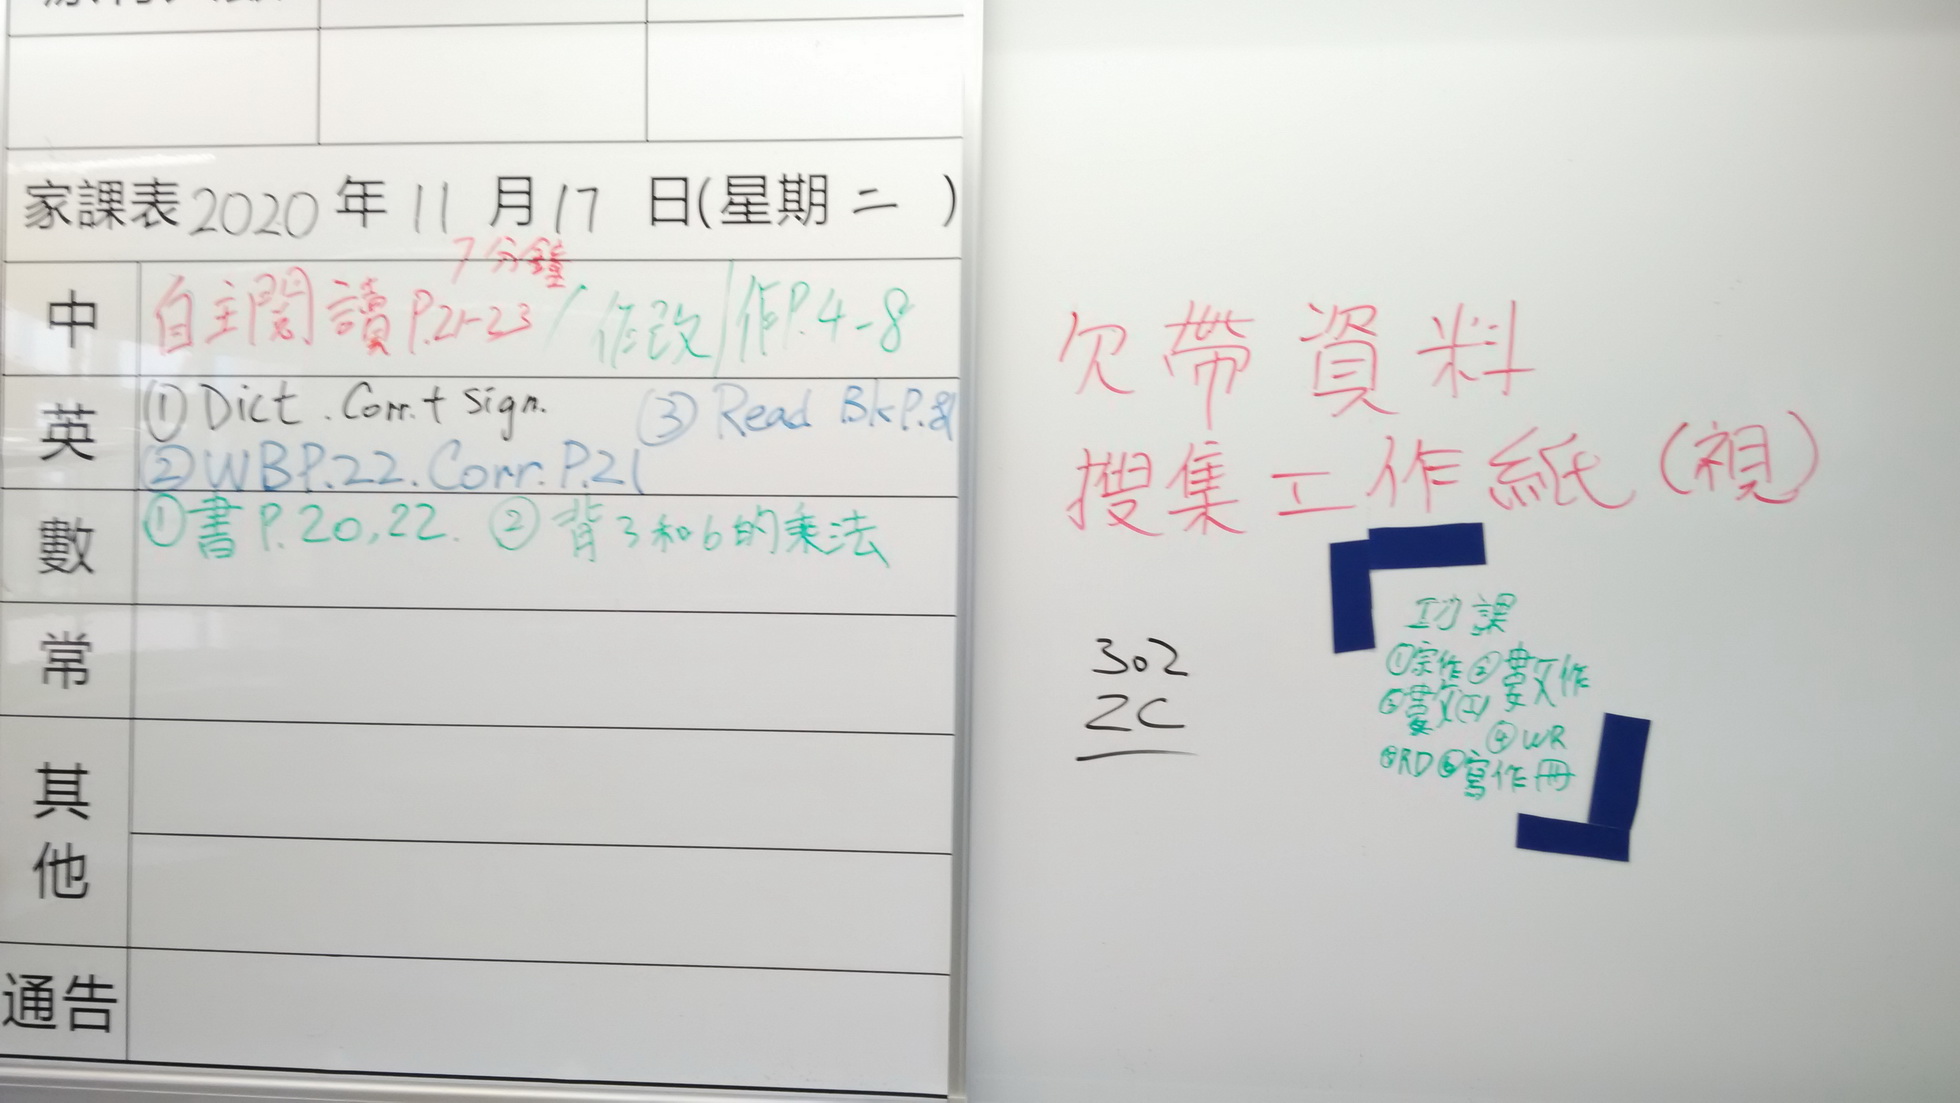 家課表2020年11月17日(星期二)
7分鐘
中 自主閱讀P.21-23/作改/作P.4-8
英 ①Dict.Corr.+Sign. ③Read BkP.
②WBP.22.Corr.P.21
數 ①書P.20,22. ②背3和6的乘法
常
其他
通告
欠帶資料
搜集工作紙(視)
302
2C
功課
①宗作②數作
④WR
⑤RD⑥寫作冊